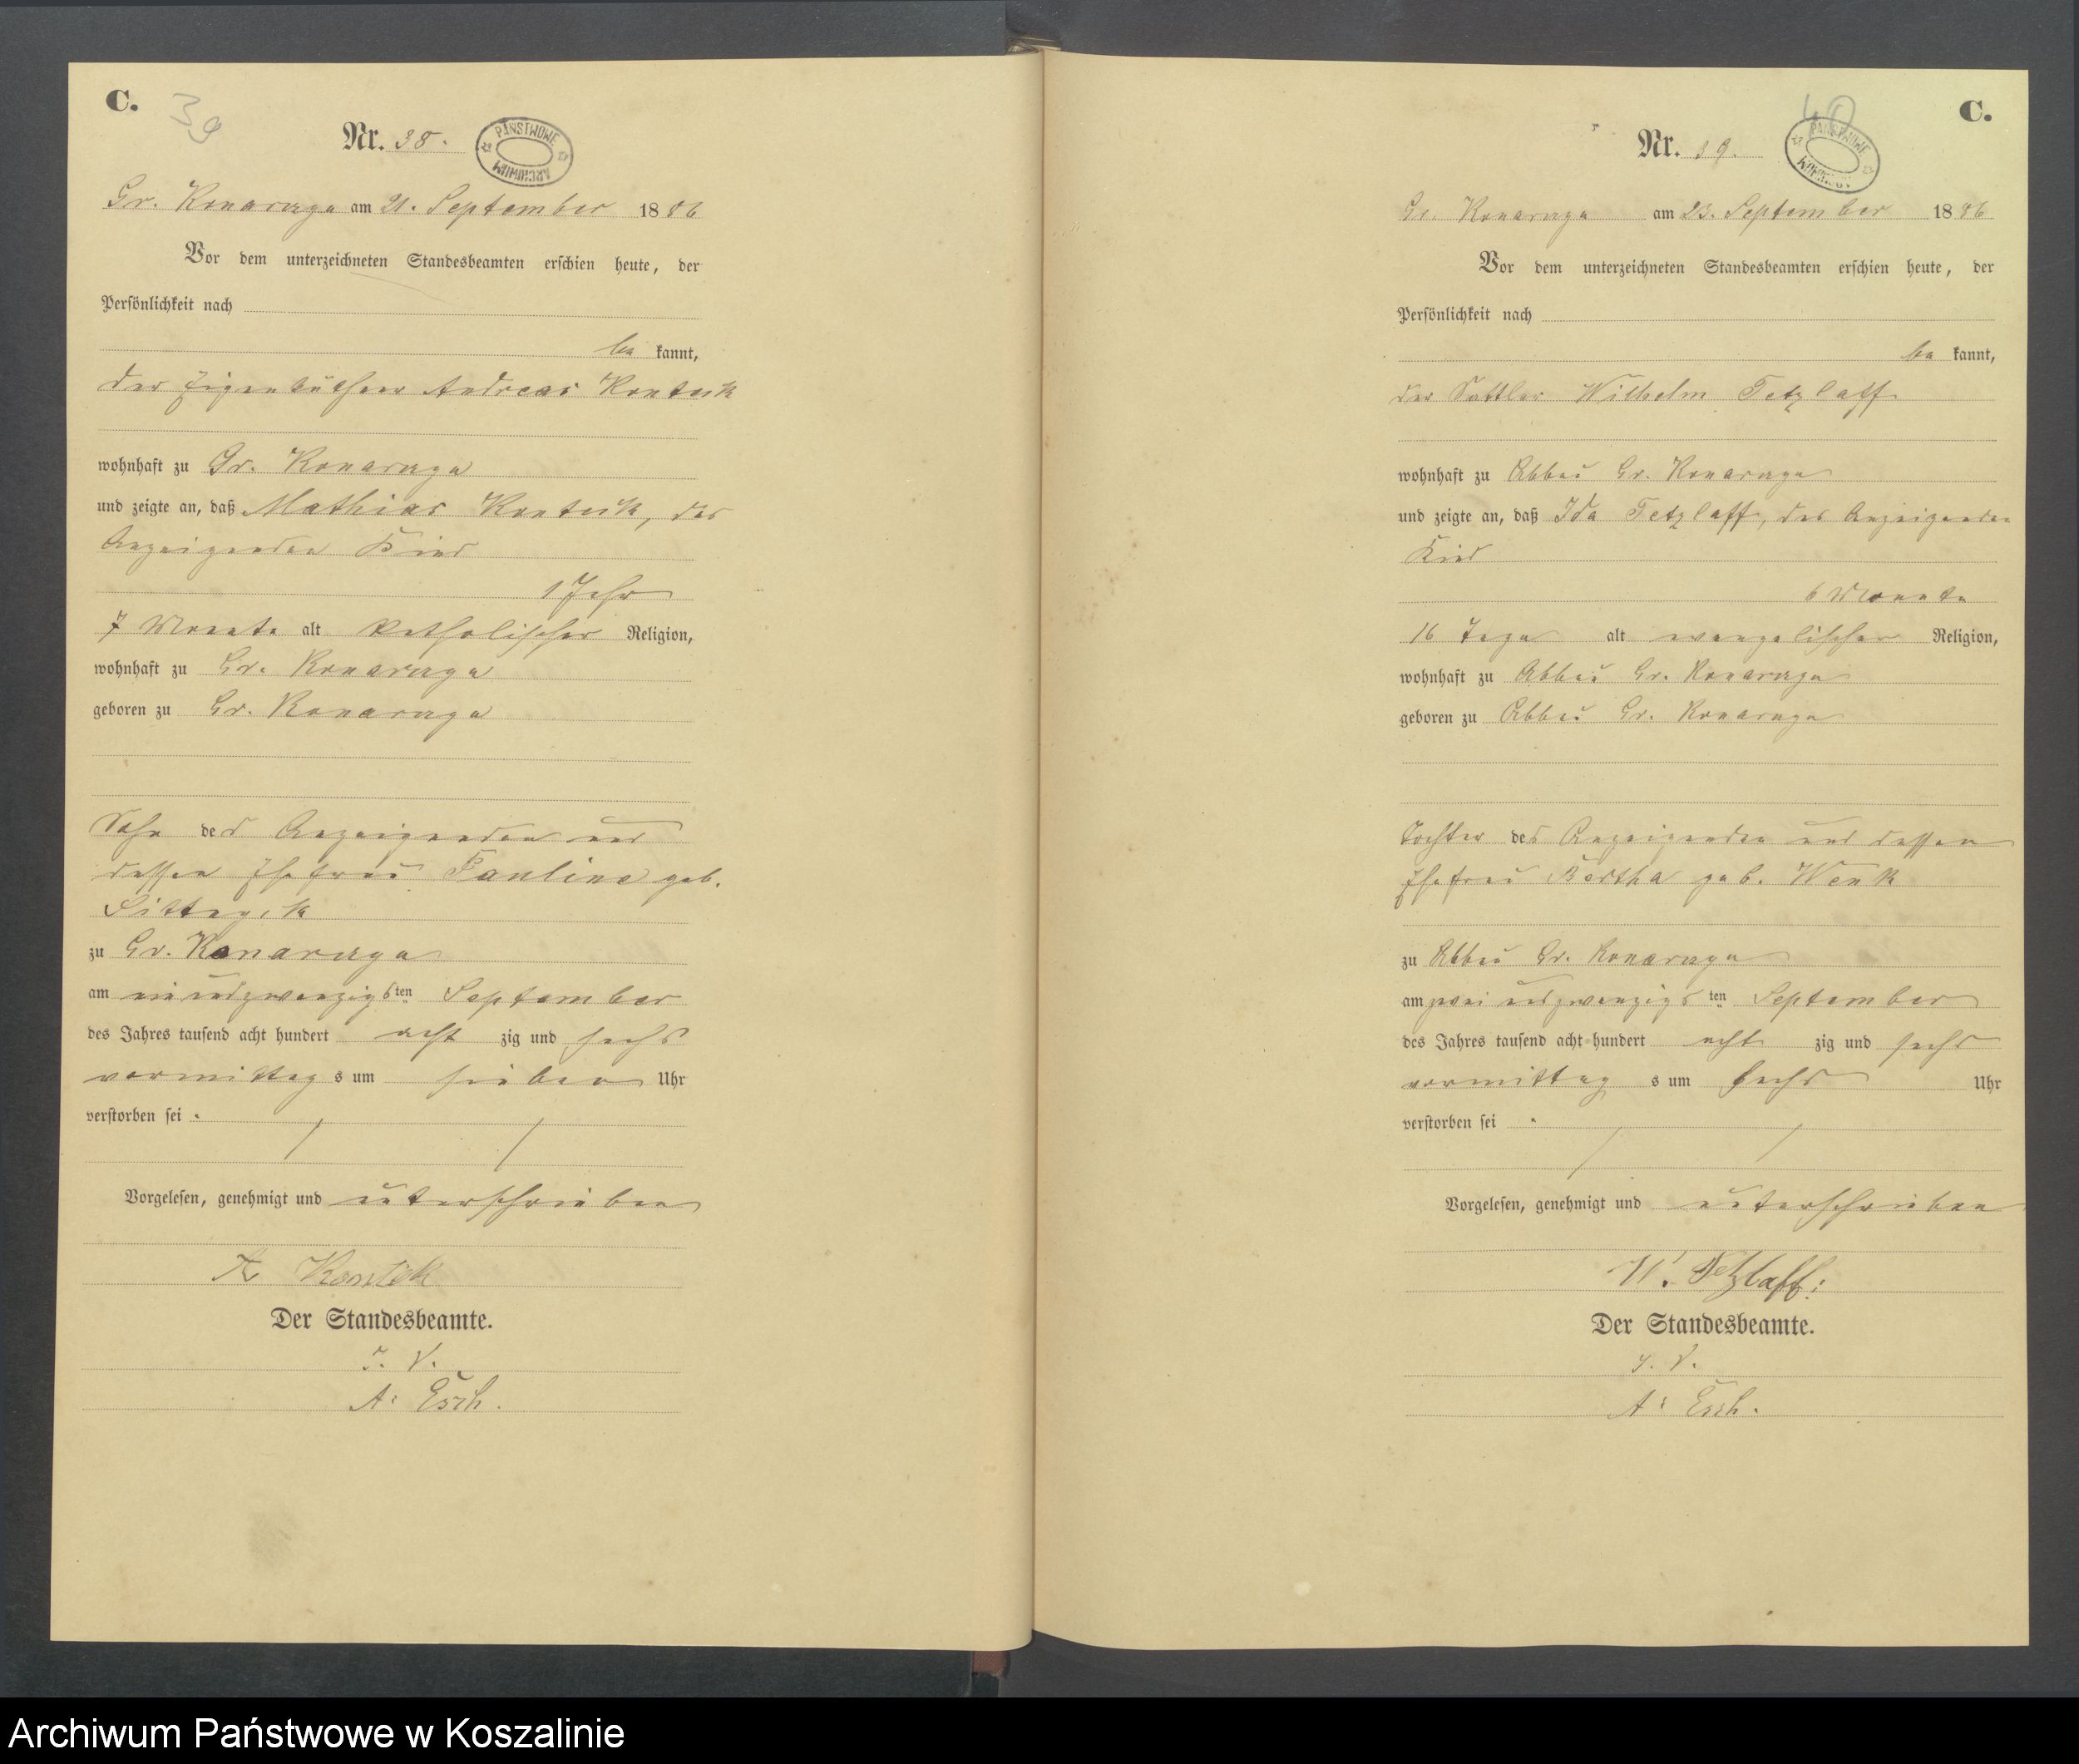 C.
39
Nr. 38.
PAŃSTWOWE ARCHIWUM
Gr. Konarzyn am 21. September 1886
Vor dem unterzeichneten Standesbeamten erschien heute, der
Persönlichkeit nach
be kannt,
der Eigenthümer Andreas
wohnhaft zu Gr. Konarzyn
und zeigte an, daß Mathias des
Anzeigenden Kind
1 Jahr
7 Monate alt katholischer Religion,
wohnhaft zu Gr. Konarzyn
geboren zu Gr. Konarzyn
Sohn des Anzeigenden und
dessen Ehefrau Pauline geb.
zu Gr. Konarzyn
am ein und zwanzigsten September
des Jahres tausend acht hundert acht zig und sechs
vormittag s um sieben Uhr
verstorben sei.
Vorgelesen, genehmigt und unterschrieben
A
Der Standesbeamte.
I. V.
A. Esch.
C.
40
Nr. 39.
PAŃSTWOWE
Gr. Konarzyn am 23. September 1886
Vor dem unterzeichneten Standesbeamten erschien heute, der
Persönlichkeit nach
be kannt,
der Sattler Wilhelm Tetzlaff
wohnhaft zu Abbau Gr. Konarzyn
und zeigte an, daß Ida Tetzlaff, des Anzeigenden
Kind
6 Monate
16 Tage alt evangelischer Religion,
wohnhaft zu Abbau Gr. Konarzyn
geboren zu Abbau Gr. Konarzyn
Tochter des Anzeigenden und dessen
Ehefrau Bertha geb. Wenk
zu Abbau Gr. Konarzyn
am zwei und zwanzigsten September
des Jahres tausend acht hundert acht zig und sechs
vormittag s um sechs Uhr
verstorben sei.
Vorgelesen, genehmigt und unterschrieben
W. Tetzlaff.
Der Standesbeamte.
I. V.
A. Esch.
Archiwum Państwowe w Koszalinie